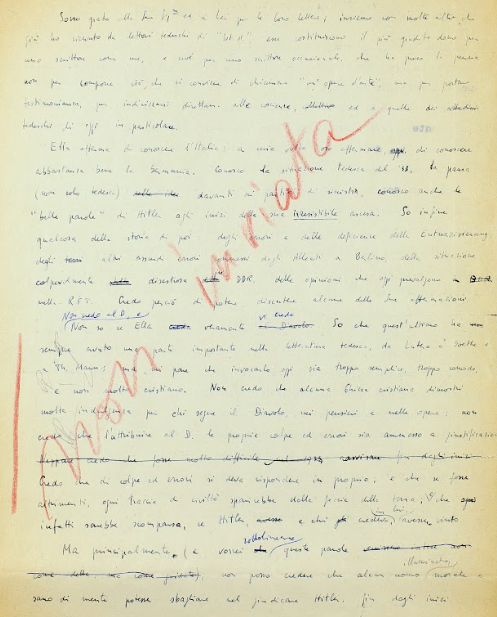 Sono grato alla Sua Sig.ra ed a Lei per le loro lettere; insieme con molte altre che
già ho ricevuto da lettori tedeschi di esse costituiscono il più gradito dono per
uno scrittore come me, e cioè per uno scrittore occasionale, che ha preso la penna
non per comporre ciò che si conviene di chiamare "un'opera d'arte", ma per portare
testimonianza, per indirizzarsi direttam. alle coscienze, ed a quelle dei cittadini
tedeschi di oggi in particolare.
Ella afferma di conoscere l'Italia; a mia volta affermare di conoscere
abbastanza bene la Germania. Conosco la situazione tedesca del la paura
(non solo tedesca) davanti ai partiti di sinistra, conosco anche le
"belle parole" di Hitler agli inizi della sua irresistibile ascesa. So infine
qualcosa della storia di poi degli errori e delle deficienze della Entnazifizierung,
degli altri assurdi errori commessi dagli Alleati a Berlino, della situazione
colpevolmente disastrosa DDR, delle opinioni che oggi prevalgono
nella R.F.T. Credo perciò di poter discutere alcune delle Sue affermazioni.
Non credo al D. e
Non so se Ella veramente vi creda So che quest'ultimo ha
sempre avuto una parte importante nella letteratura tedesca, da Lutero a Goethe
a Th. Mann; ma mi pare che invocarlo oggi sia troppo semplice, troppo comodo.
e non molto cristiano. Non credo che alcuna Chiesa cristiana dimostri
molta indulgenza per chi segue il Diavolo, nei pensieri e nelle opere; non
credo che l'attribuire al D. le proprie colpe ed errori sia ammesso a giustificazione
credo che fosse molto difficile fin dagli inizi
Credo che di colpe ed errori si deva rispondere in proprio, e che se fosse
altrimenti, ogni traccia di civiltà sparirebbe dalla faccia della terra, che
infatti sarebbe scomparsa, se Hitler e chi credeva in lui avessero vinto
Ma principalmente, (e vorrei sottolineare queste parole
non posso credere che alcun uomo
sano di mente potesse sbagliare nel giudicare Hitler fin dagli inizi
non inviata